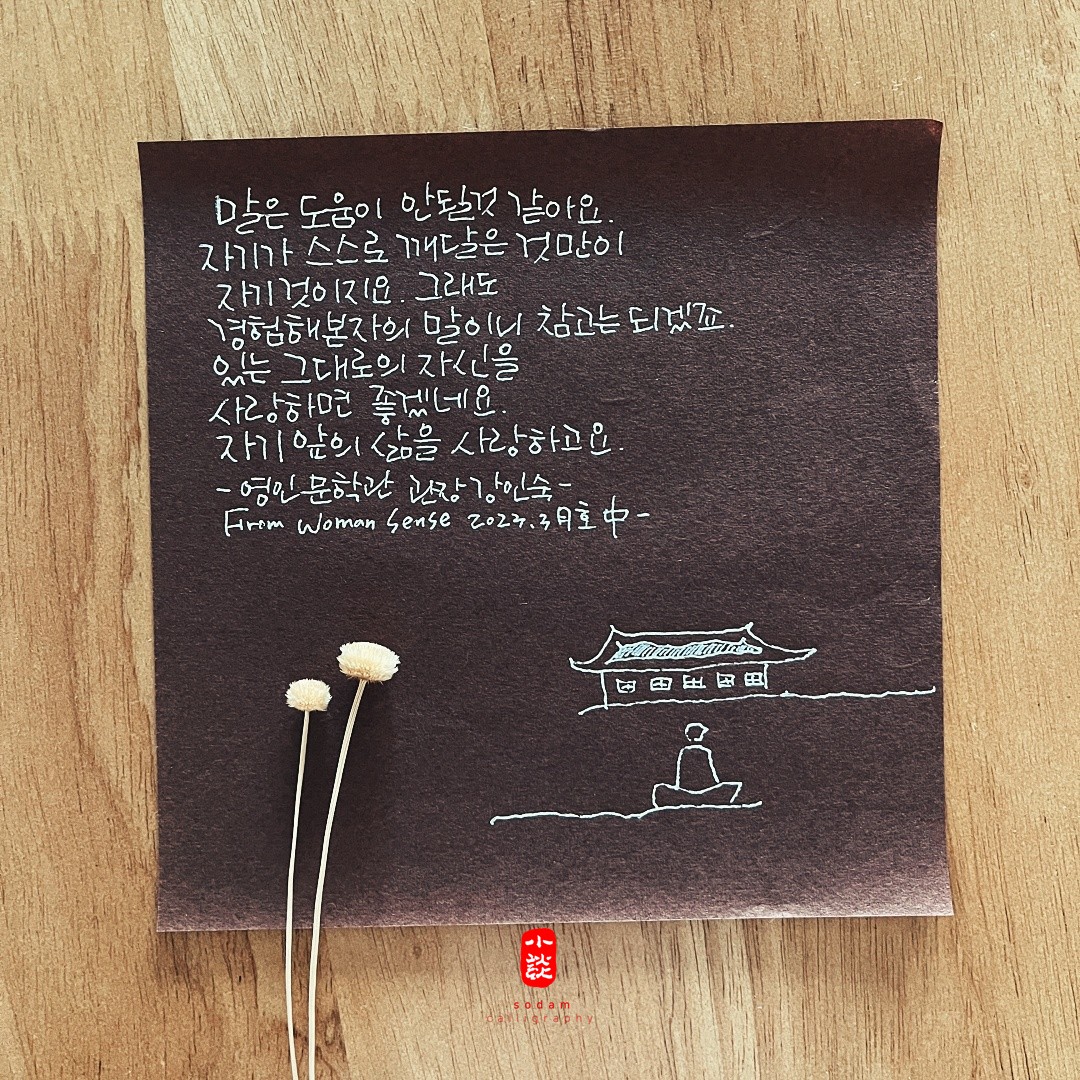 말은 도움이 안될것 같아요.
자기가 스스로 깨달은 것만이
자기것이지요. 그래도
경험해본자의 말이니 참고는 되겠죠.
있는 그대로의 자신을
사랑하면 좋겠네요.
자기 앞의 삶을 사랑하고요.
-영인문학관 관장 강인숙-
From Woman Sense 2023.3月호 中-
小談
sodam
calligraphy